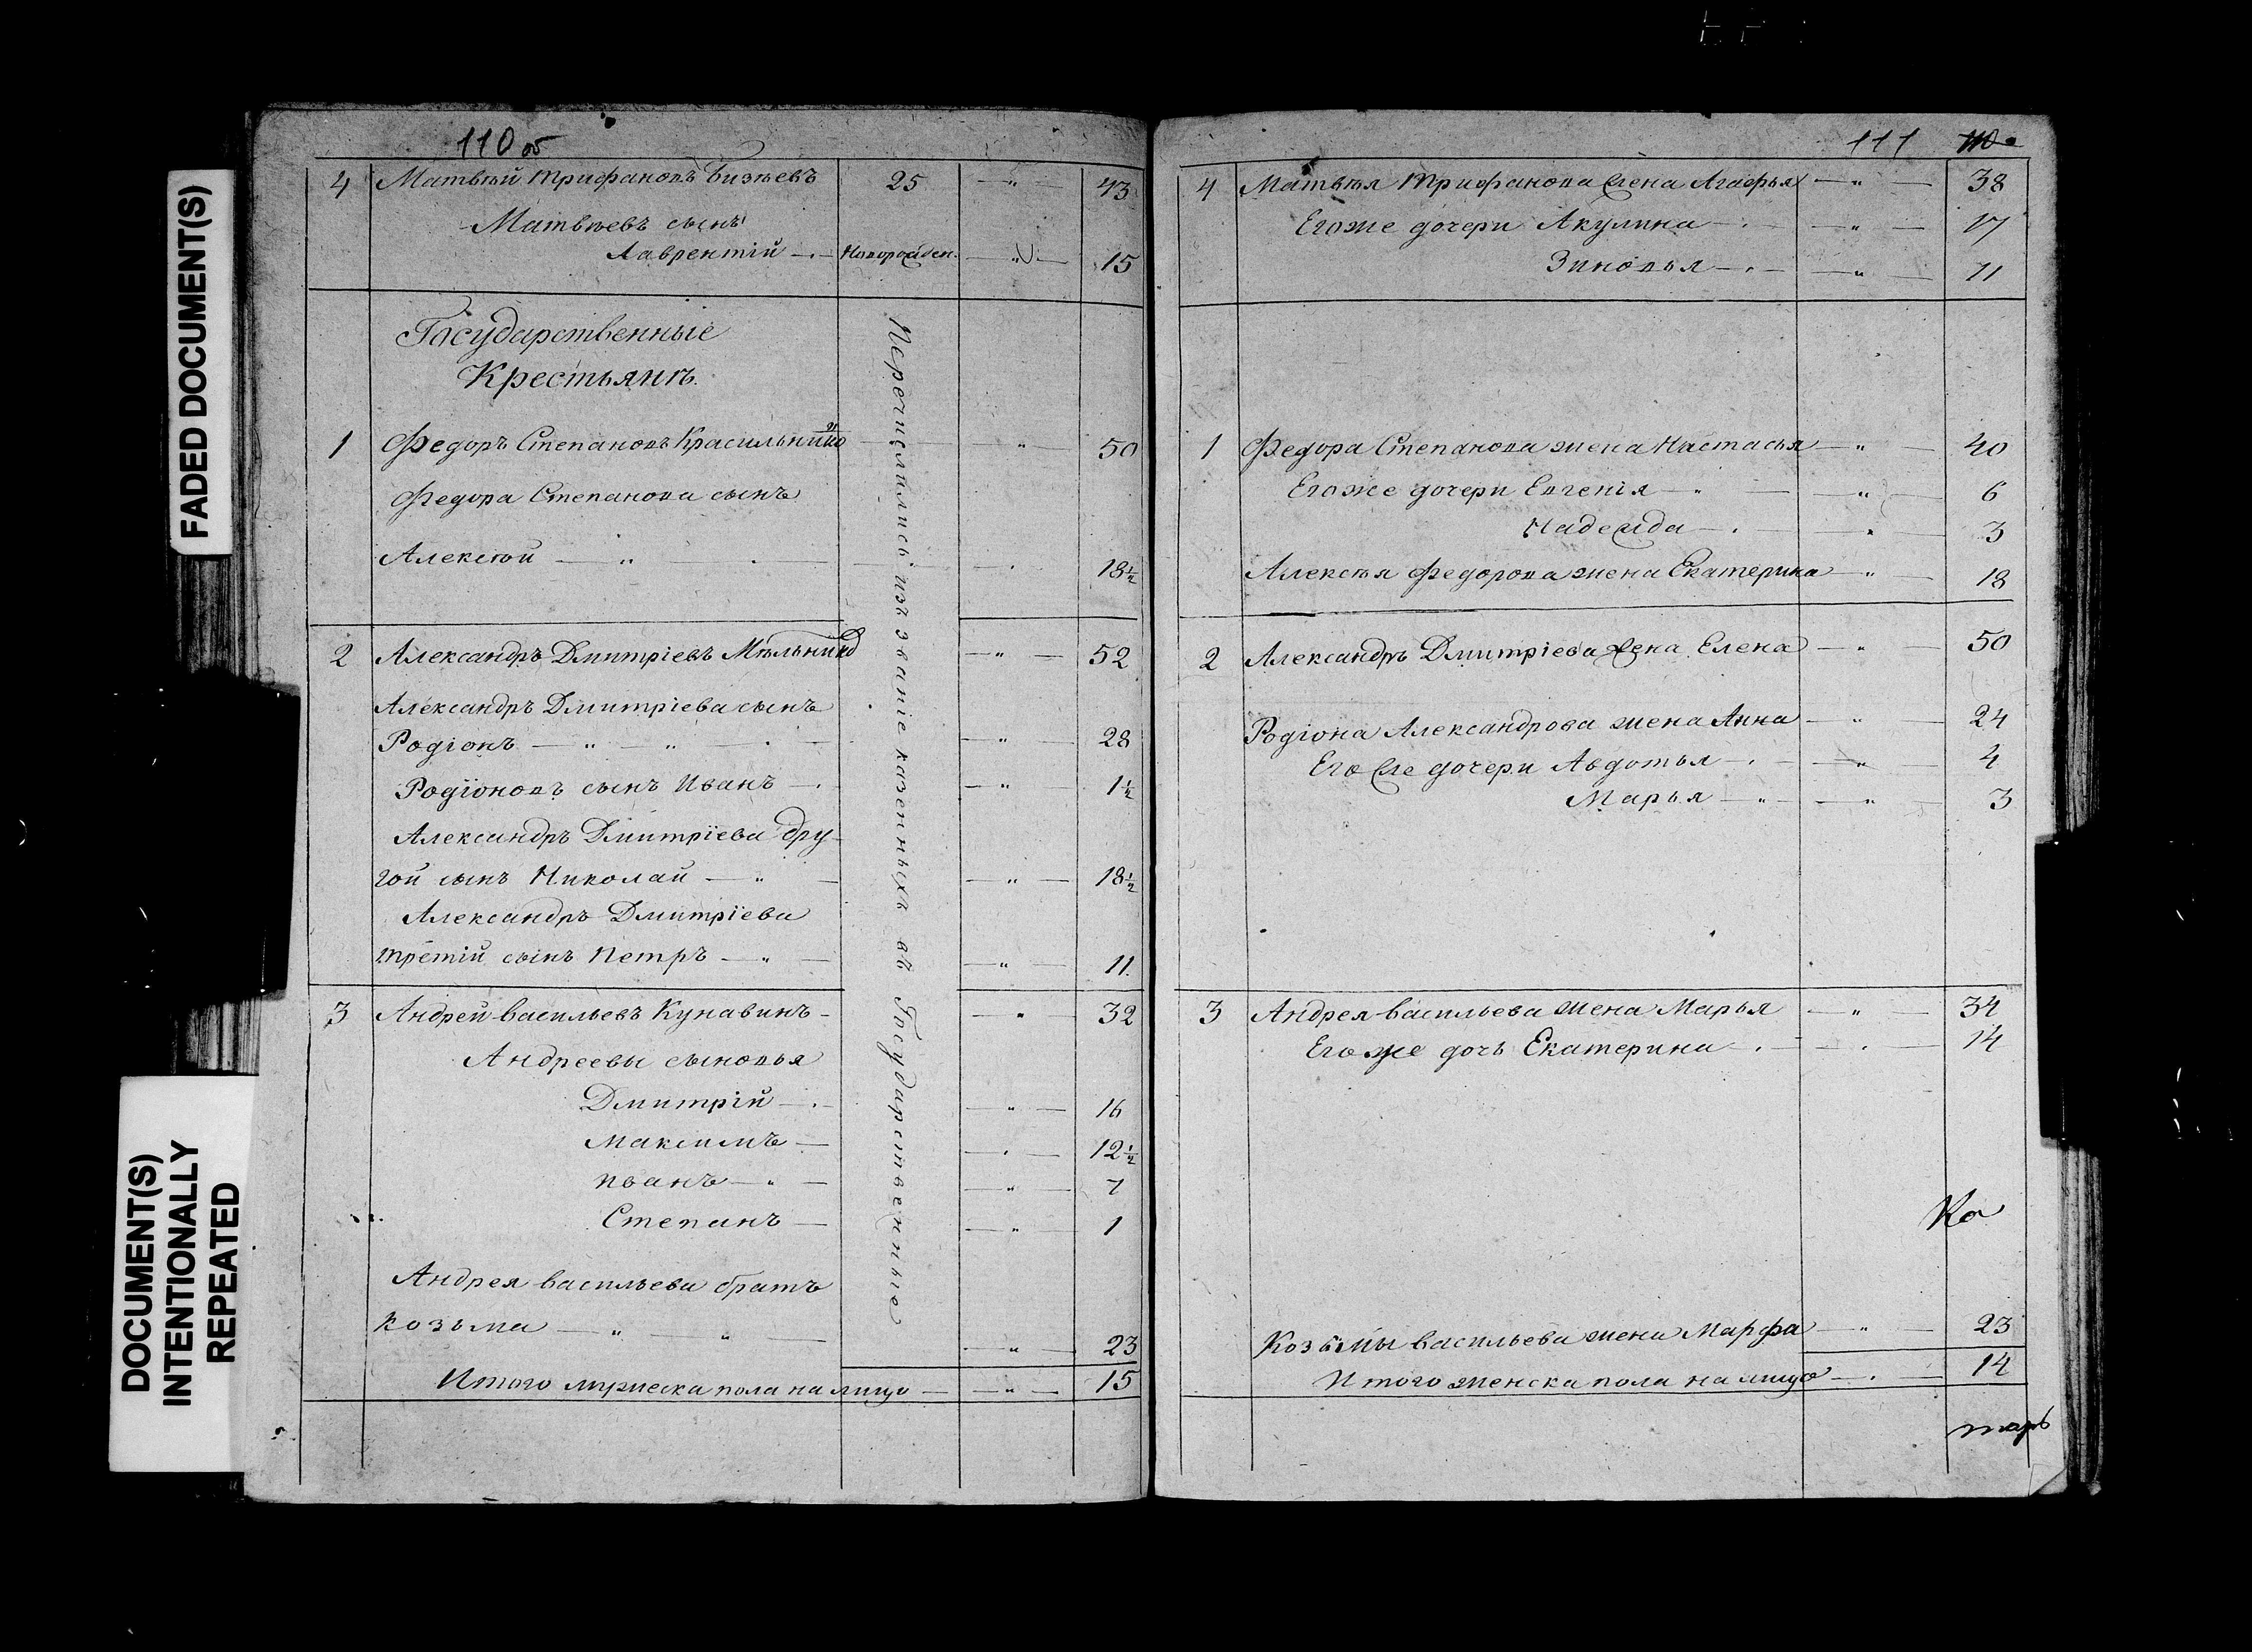 FADED DOCUMENT(S)
DOCUMENT(S)
INTENTIONALLY
REPEATED
110 об
4 Матвѣй Трифановъ Бизѣевъ 25 — " — 43
Матвѣевъ сынъ
Лаврентій — . — Новорожден. — " — 15
Государственные
Крестьянъ.
1 Федоръ Степановъ Красильнико — " — 50
Федора Степанова сынъ
Алексѣй — " . — . — 18½
2 Александръ Дмитріевъ Мѣльнико — " — 52
Александръ Дмитріева сынъ
Родіонъ — " — " — . — — " — 28
Родіоновъ сынъ Иванъ — . — " 1½
Александръ Дмитріева дру-
гой сынъ Николай — " — — " — 18½
Александръ Дмитріева
третій сынъ Петръ — " — — " — 11.
3 Андрей Васильевъ Кунавинъ - — " — 32
Андреевы сыновья
Дмитрій — . — — " — 16
Максимъ — — . — 12½
Иванъ — " — — " — 7
Степанъ — — " — 1
Андрея Васильева братъ
Козьма — " — " — — " — 23
Итого мужеска пола на лицо — — " — 15
Перечислились изъ званіе казенныхъ въ Государственные
111 110
4 Матвѣя Трифанова жена Агафья — " — 38
Егоже дочери Акулина — . — " — 17
Зиновья — . — — " — 11
1 Федора Степанова жена Настасья — " — 40
Егоже дочери Евгенія — " — " — 6
Надежда — . — " — 3
Алексѣя Федорова жена Екатерина — " — 18
2 Александръ Дмитріева жена Елена — " — 50
Родіона Александрова жена Анна — " — 24
Его же дочери Авдотья — . — " — 4
Марья — " — — " — 3
3 Андрея Васильева жена Марья — " — 34
Егоже дочь Екатерина . — . — 14
Ко
Козьмы Васильева жена Марфа — " — 23
Итого женска пола на лицо — . — 14
тарь